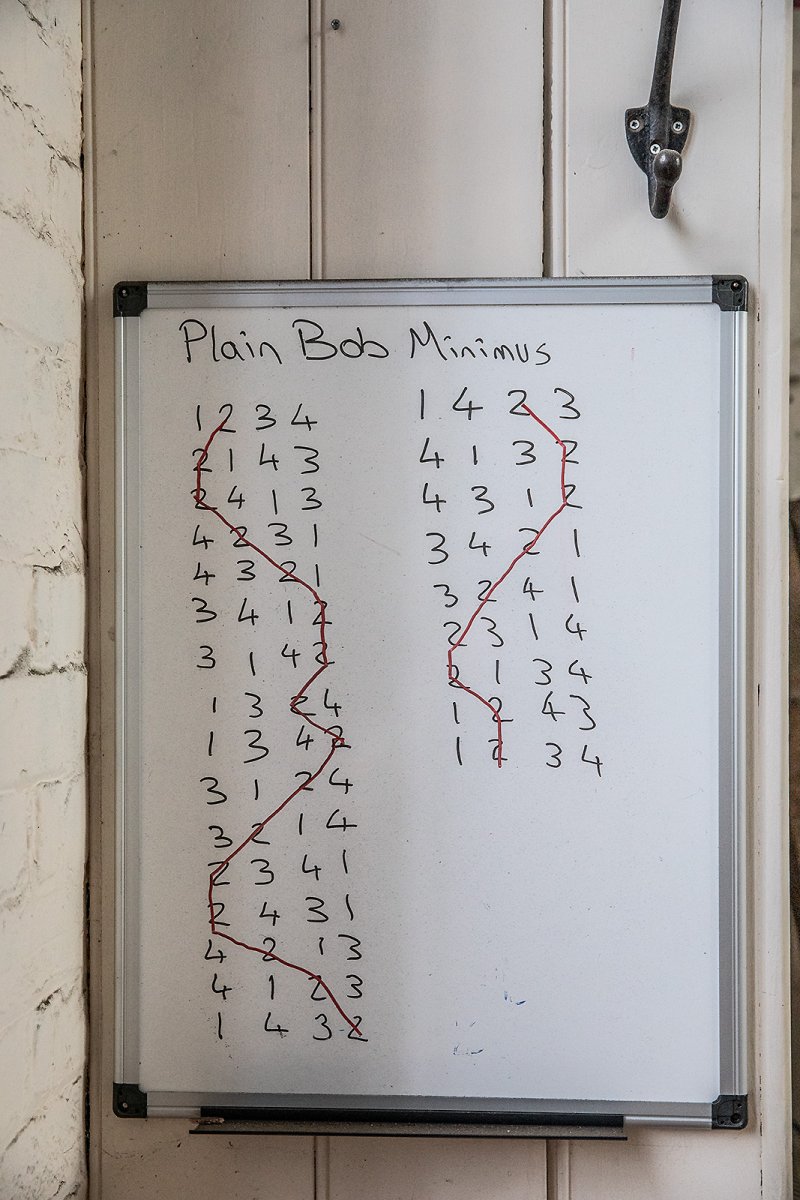 Plain Bob Minimus
1 2 3 4
2 1 4 3
2 4 1 3
4 2 3 1
4 3 2 1
3 4 1 2
3 1 4 2
1 3 2 4
1 3 4 2
3 1 2 4
3 2 1 4
2 3 4 1
2 4 3 1
4 2 1 3
4 1 2 3
1 4 3 2
1 4 2 3
4 1 3 2
4 3 1 2
3 4 2 1
3 2 4 1
2 3 1 4
2 1 3 4
1 2 4 3
1 2 3 4